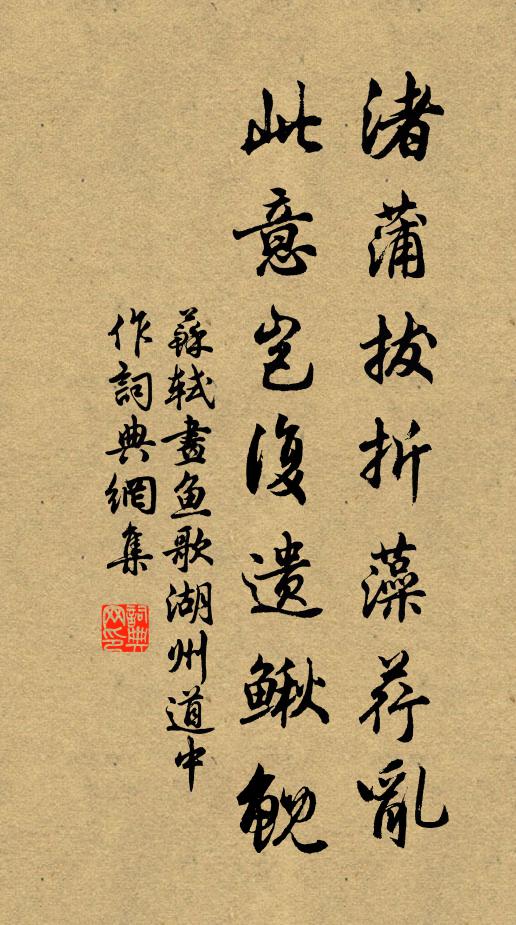 渚蒲拔折藻荇亂
此意豈復遺鰍鯢
蘇軾畫魚歌湖州道中
作詞典網集
詞典
网印